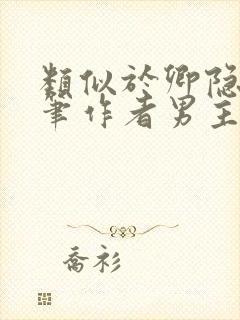 類似於卿隐
筆作者男主
喬衫